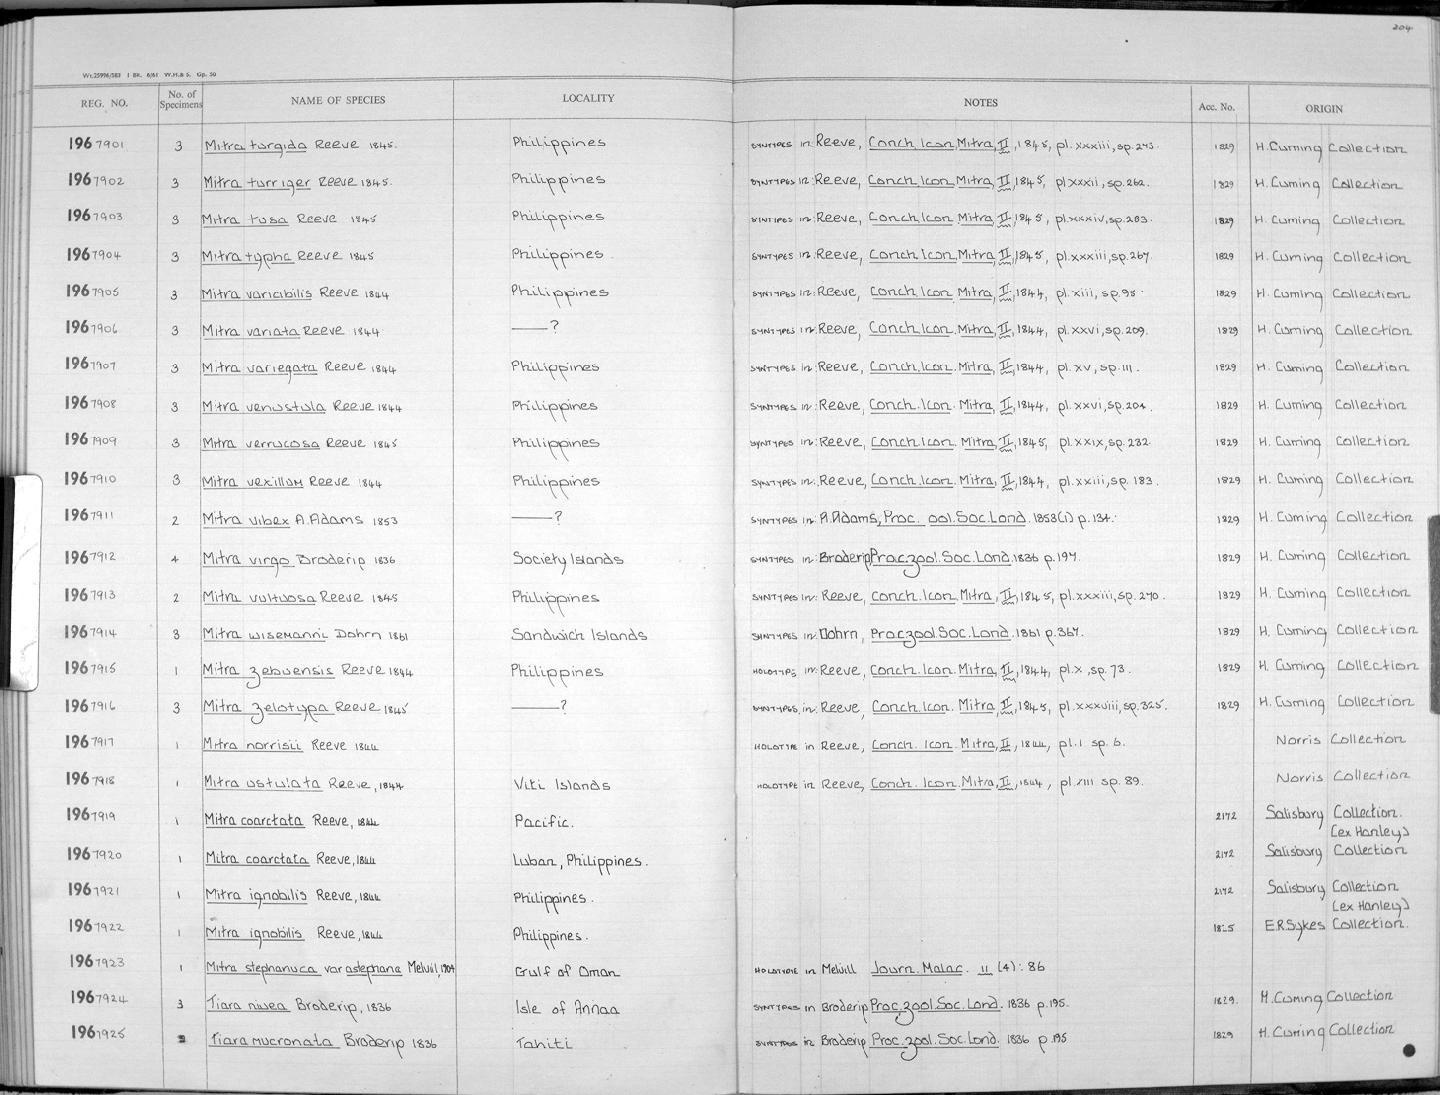 204
Wt.25996/583 1 Bk. 6/61 W.H.& S. Gp. 50
REG. NO. No. of Specimens NAME OF SPECIES LOCALITY NOTES Acc. No. ORIGIN
1967901 3 Mitra turgida Reeve 1845. Philippines SYNTYPES in: Reeve, Conch. Icon. Mitra, II, 1845, pl. xxxiii, sp. 243. 1829 H. Cuming Collection
1967902 3 Mitra turriger Reeve 1845. Philippines SYNTYPES in: Reeve, Conch. Icon. Mitra, II, 1845, pl xxxii, sp. 262. 1829 H. Cuming Collection
1967903 3 Mitra tusa Reeve 1845 Philippines SYNTYPES in: Reeve, Conch. Icon. Mitra, II, 1845, pl. xxxiv, sp. 283. 1829 H. Cuming Collection
1967904 3 Mitra typha Reeve 1845 Philippines. SYNTYPES in: Reeve, Conch. Icon. Mitra, II, 1845, pl. xxxiii, sp. 267. 1829 H. Cuming Collection
1967905 3 Mitra variabilis Reeve 1844 Philippines SYNTYPES in: Reeve, Conch. Icon. Mitra, II, 1844, pl. xiii, sp. 95. 1829 H. Cuming Collection
1967906 3 Mitra variata Reeve 1844 ——? SYNTYPES in: Reeve, Conch. Icon. Mitra, II, 1844, pl. xxvi, sp. 209. 1829 H. Cuming Collection
1967907 3 Mitra variegata Reeve 1844 Philippines SYNTYPES in: Reeve, Conch. Icon. Mitra, II, 1844, pl. xv, sp. 111. 1829 H. Cuming Collection
1967908 3 Mitra venustula Reeve 1844 Philippines SYNTYPES in: Reeve, Conch. Icon. Mitra, II, 1844, pl. xxvi, sp. 204. 1829 H. Cuming Collection
1967909 3 Mitra verrucosa Reeve 1845 Philippines SYNTYPES in: Reeve, Conch. Icon. Mitra, II, 1845, pl. xxix, sp. 232. 1829 H. Cuming Collection
1967910 3 Mitra vexillum Reeve 1844 Philippines SYNTYPES in: Reeve, Conch. Icon. Mitra, II, 1844, pl. xxiii, sp. 183. 1829 H. Cuming Collection
1967911 2 Mitra vibex A. Adams 1853 ——? SYNTYPES in: A. Adams, Proc. ool. Soc. Lond. 1853(1) p. 134. 1829 H. Cuming Collection
1967912 4 Mitra virgo Broderip 1836 Society Islands SYNTYPES in: Broderip, Proc. zool. Soc. Lond. 1836 p. 194. 1829 H. Cuming Collection
1967913 2 Mitra vultuosa Reeve 1845 Philippines SYNTYPES in: Reeve, Conch. Icon. Mitra, II, 1845, pl. xxxiii, sp. 270. 1829 H. Cuming Collection
1967914 3 Mitra wisemanni Dohrn 1861 Sandwich Islands SYNTYPES in: Dohrn, Proc. zool. Soc. Lond. 1861 p. 367. 1829 H. Cuming Collection
1967915 1 Mitra zebuensis Reeve 1844 Philippines HOLOTYPE in: Reeve, Conch. Icon. Mitra, II, 1844, pl. x, sp. 73. 1829 H. Cuming Collection
1967916 3 Mitra zelotypa Reeve 1845 ——? SYNTYPES, in: Reeve, Conch. Icon. Mitra, II, 1845, pl. xxxviii, sp. 325. 1829 H. Cuming Collection
1967917 1 Mitra norrisii Reeve 1844 HOLOTYPE in Reeve, Conch. Icon. Mitra, II, 1844, pl. I sp. 6. Norris Collection
1967918 1 Mitra ustulata Reeve, 1844 Viti Islands HOLOTYPE in Reeve, Conch. Icon. Mitra, II, 1844, pl. XIII sp. 89. Norris Collection
1967919 1 Mitra coarctata Reeve, 1844 Pacific. 2172 Salisbury Collection.
(ex Hanley)
1967920 1 Mitra coarctata Reeve, 1844 Luban, Philippines. 2172 Salisbury Collection
1967921 1 Mitra ignobilis Reeve, 1844 Philippines. 2172 Salisbury Collection
(ex Hanley)
1967922 1 Mitra ignobilis Reeve, 1844 Philippines. 1825 E.R. Sykes Collection.
1967923 1 Mitra stephanuca var astephana Melvill, 1904 Gulf of Oman HOLOTYPE in Melvill Journ. Malac. 11 (4): 86
1967924 3 Tiara nivea Broderip, 1836 Isle of Annaa SYNTYPES in Broderip Proc. zool. Soc. Lond. 1836 p. 195. 1829. H. Cuming Collection
1967925 Tiara mucronata Broderip 1836 Tahiti SYNTYPES in Broderip Proc. zool. Soc. Lond. 1836 p. 195 1829 H. Cuming Collection